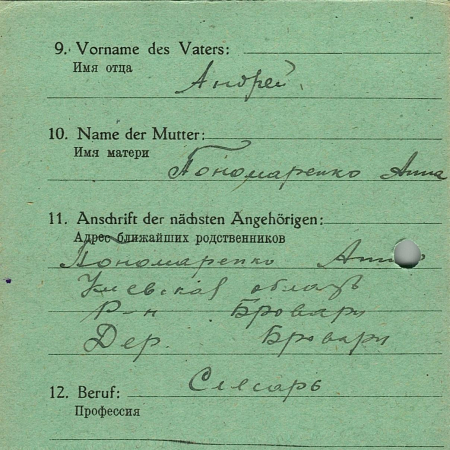 9. Vorname des Vaters:
Имя отца
Андрей
10. Name der Mutter:
Имя матери
Пономаренко Анна
11. Anschrift der nächsten Angehörigen:
Адрес ближайших родственников
Пономаренко
Киевская область
Р-н Бровари
Дер. Бровари
Слесарь
12. Beruf:
Профессия